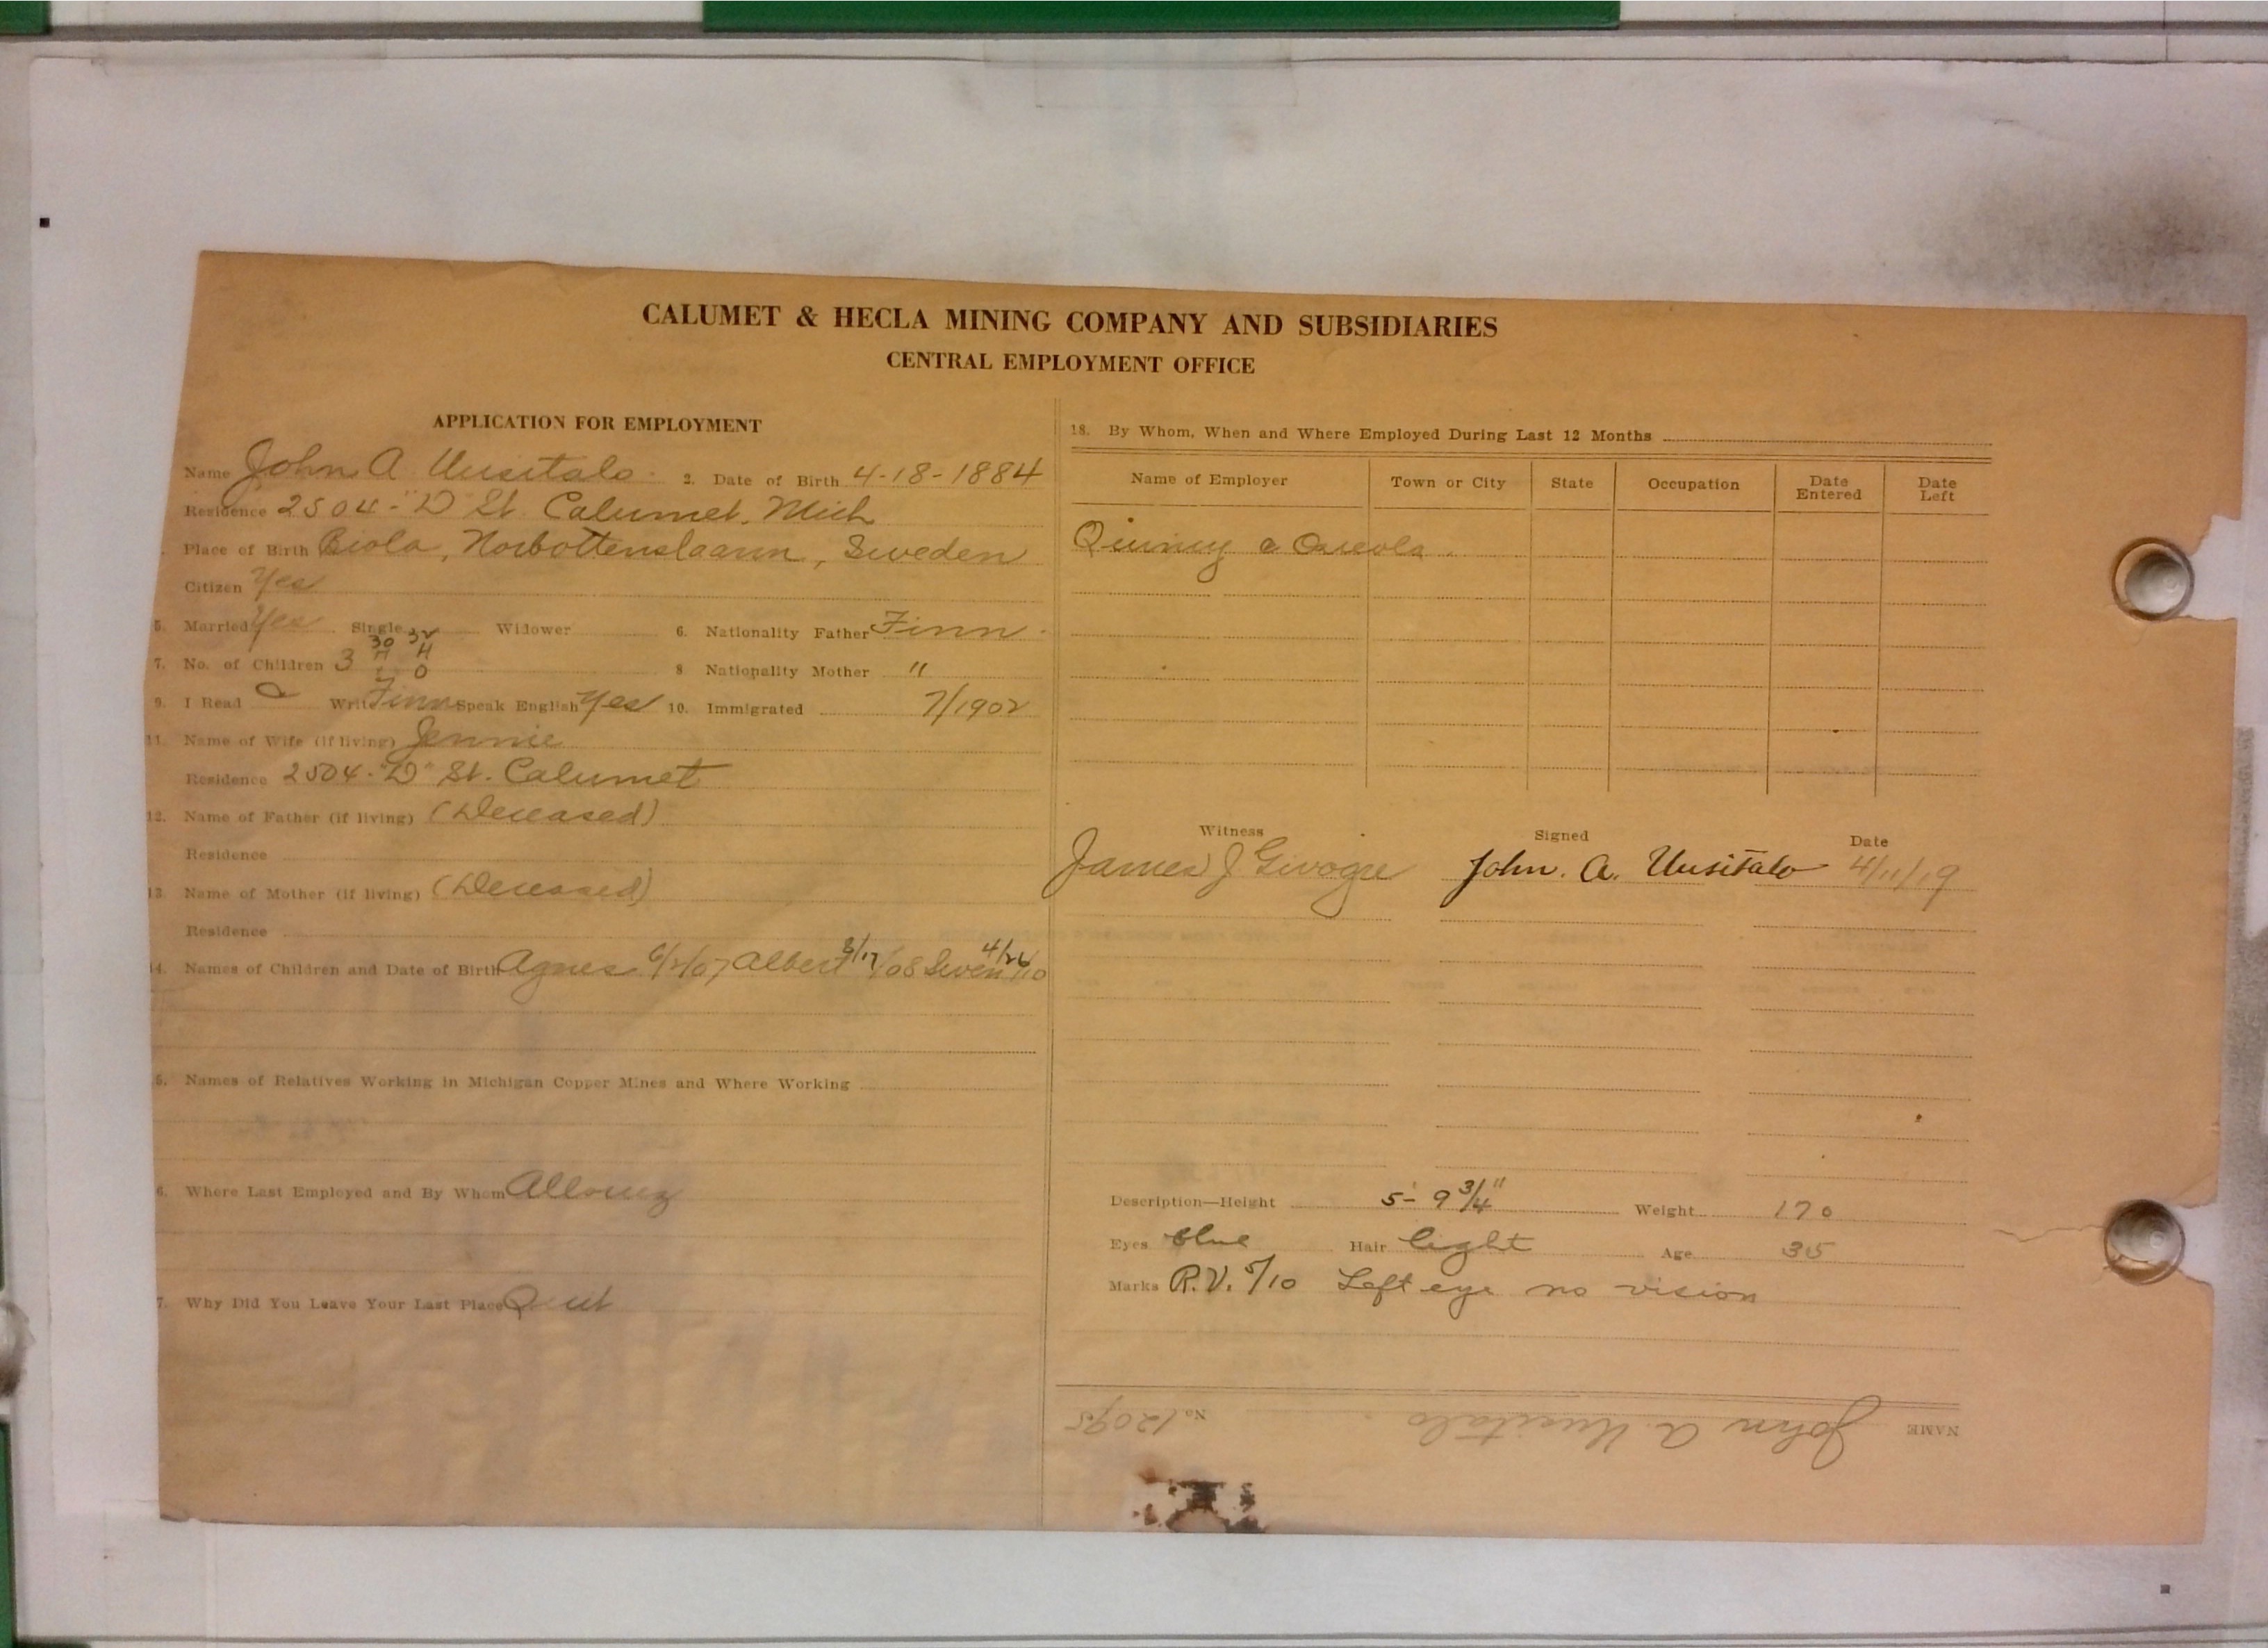 CALUMET & HECLA MINING COMPANY AND SUBSIDIARIES
CENTRAL EMPLOYMENT OFFICE
APPLICATION FOR EMPLOYMENT
Name John A Uusitalo 2. Date of Birth 4-18-1884
Residence 2504-"D" St. Calumet, Mich
Place of Birth Norbottenslaann, Sweden
Citizen Yes
5. Married Yes Single Widower 6. Nationality Father Finn
30 32
7. No. of Children 3 H H 8 Nationality Mother "
0
9. I Read Write Finn Speak English Yes 10. Immigrated 7/1902
11. Name of Wife (if living) Jennie
Residence 2504-"D" St. Calumet
12. Name of Father (if living) (Deceased)
Residence
13. Name of Mother (if living) (Deceased)
Residence
14. Names of Children and Date of Birth Agnes Albert 3/17/08 Swen 4/26/10
5. Names of Relatives Working in Michigan Copper Mines and Where Working
6. Where Last Employed and By Whom Allouez
7. Why Did You Leave Your Last Place Quit
18. By Whom, When and Where Employed During Last 12 Months
Name of Employer Town or City State Occupation Date Entered Date Left
Quincy & Osceola
Witness Signed Date
James J John. A. Uusitalo 4/11/19
Description—Height 5'-9 3/4" Weight 170
Eyes blue Hair light Age 35
Marks R.V. 5/10 Left eye no vision
NAME John A. Uusitalo No. 12095